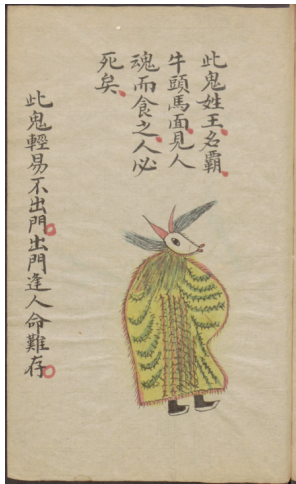 此鬼姓王名霸
牛頭馬面見人
魂而食之人必
死矣
此鬼輕易不出門出門逢人命難存